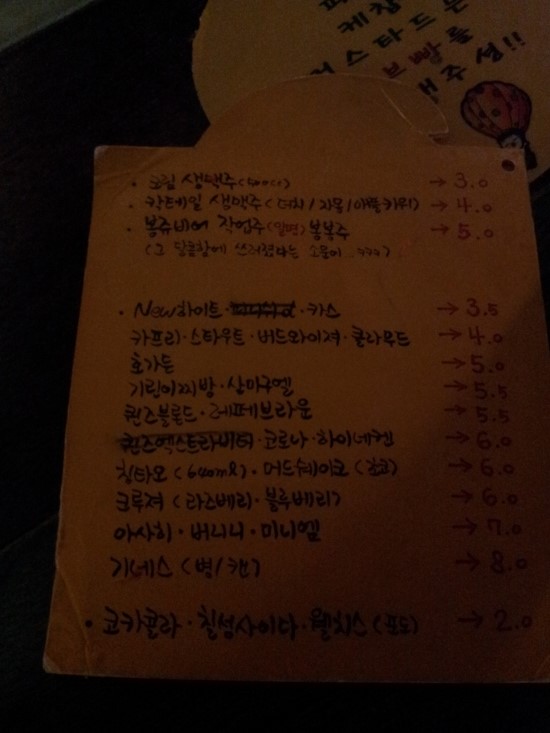 케찹
머스타드는
셀프빵을
해주셩!!
· 크림 생맥주(500cc) → 3.0
· 칵테일 생맥주(더치/자몽/애플키위) → 4.0
· 봉쥬비어 작업주(일명)봉봉주 → 5.0
(그 달콤함에 쓰러졌다는 소문이..ㅋㅋㅋ)
· New하이트 · 카스 → 3.5
카프리·스타우트·버드와이져·클라우드 → 4.0
호가든 → 5.0
기린이찌방·산미구엘 → 5.5
퀸즈블론드·레페브라운 → 5.5
퀸즈엑스트라비터·코로나·하이네켄 → 6.0
칭타오(640ml)·머드쉐이크(초코) → 6.0
크루져(라즈베리·블루베리) → 6.0
아사히·버니니·미니엘 → 7.0
기네스(병/캔) → 8.0
· 코카콜라·칠성사이다·웰치스(포도) → 2.0